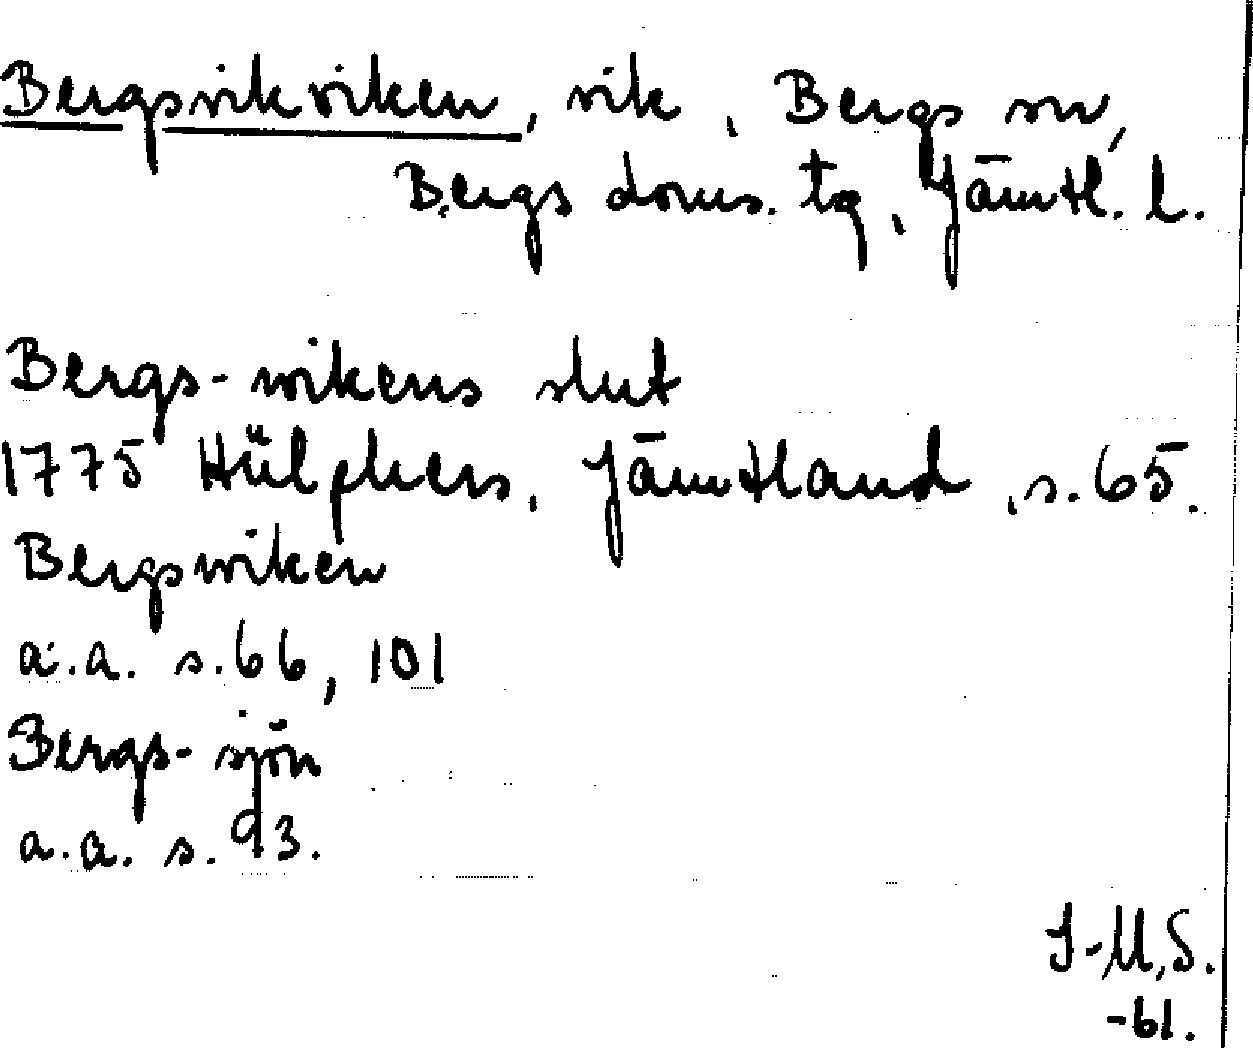 Bergsvikviken, vik, Bergs sn,
Bergs doms. tg, Jämtl. l.
Bergs-wikens slut
1775 Hülphers, Jämtland, s. 65.
Bergswiken
a.a. s. 66, 101
Bergs-sjön
a.a. s. 93.
I-M,S.
-61.